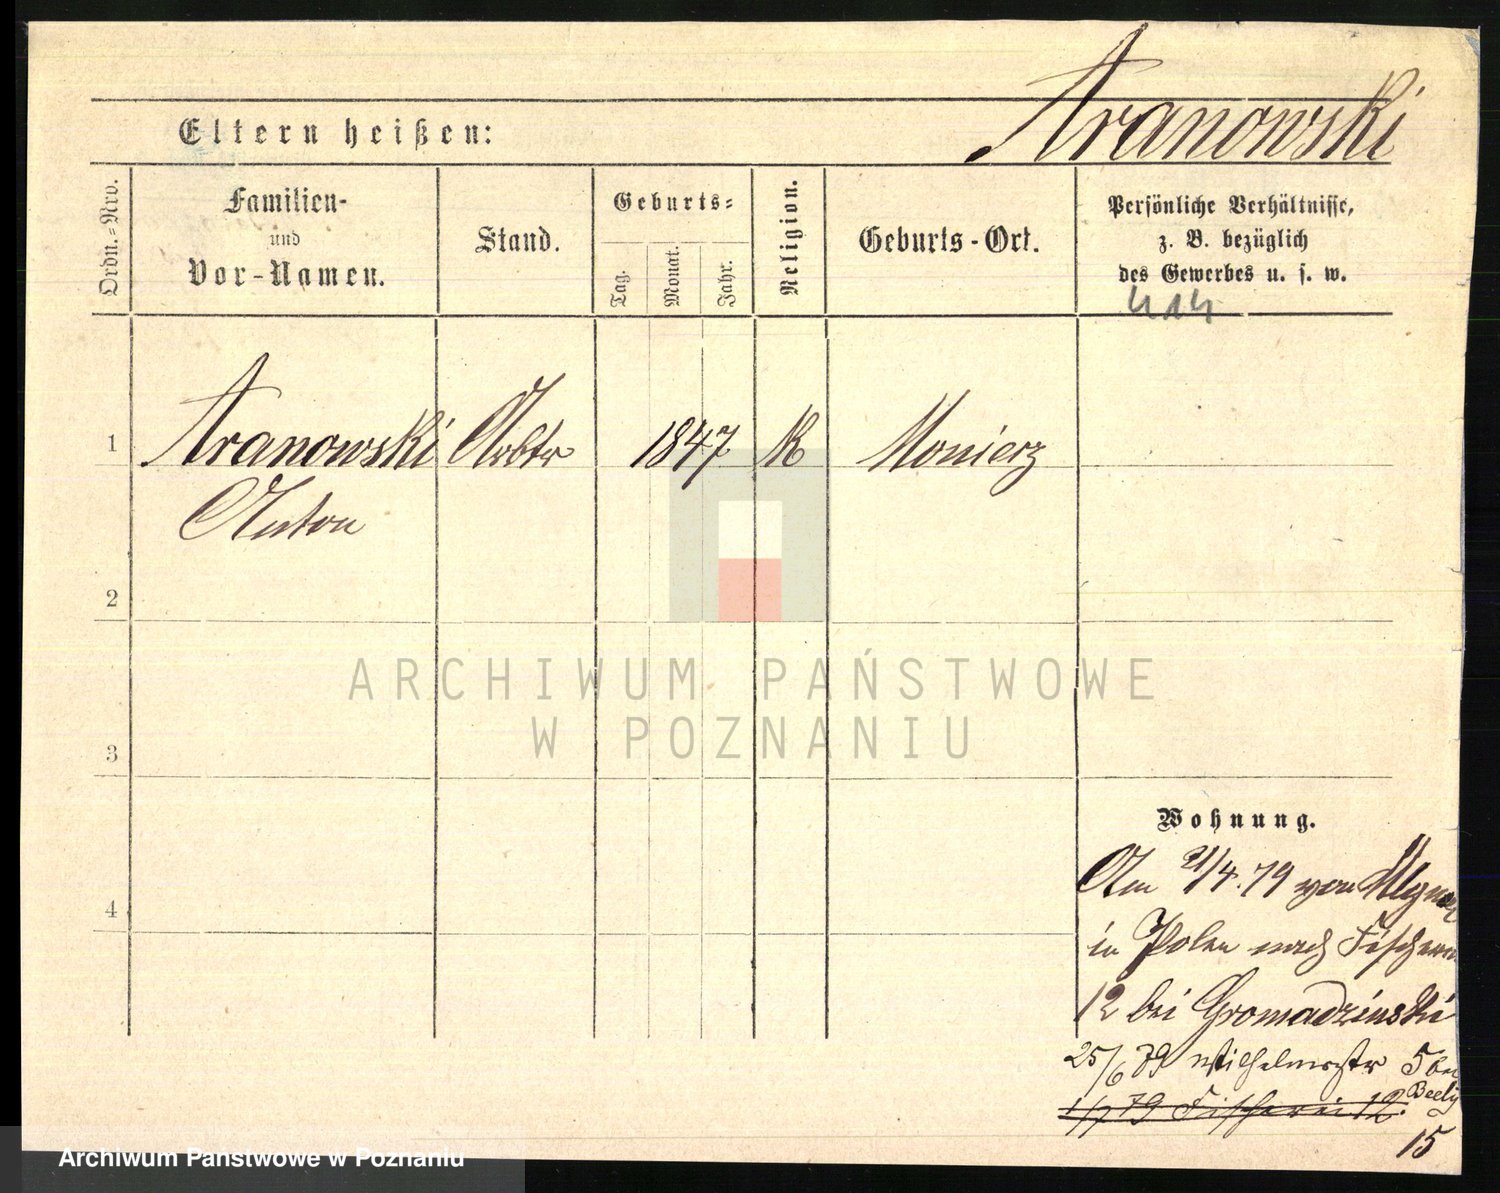 Aranowski
Eltern heißen:
Ordn.-Nro.
Familien-
und
Vor-Namen.
Stand.
Geburts-
Tag.
Monat.
Jahr.
Religion.
Geburts-Ort.
Persönliche Verhältnisse,
z. B. bezüglich
des Gewerbes u. s. w.
1
Aranowski Arbtr 1847 K Monierz
Anton
2
3
4
ARCHIWUM PAŃSTWOWE
W POZNANIU
Wohnung.
Am 21/4.79 von
in Polen nach
12 bei Gromadzinski
25/6 79 Wilhelmsstr 5 bei
Beely
1/7 79 Fischerei 12.
15
Archiwum Państwowe w Poznaniu